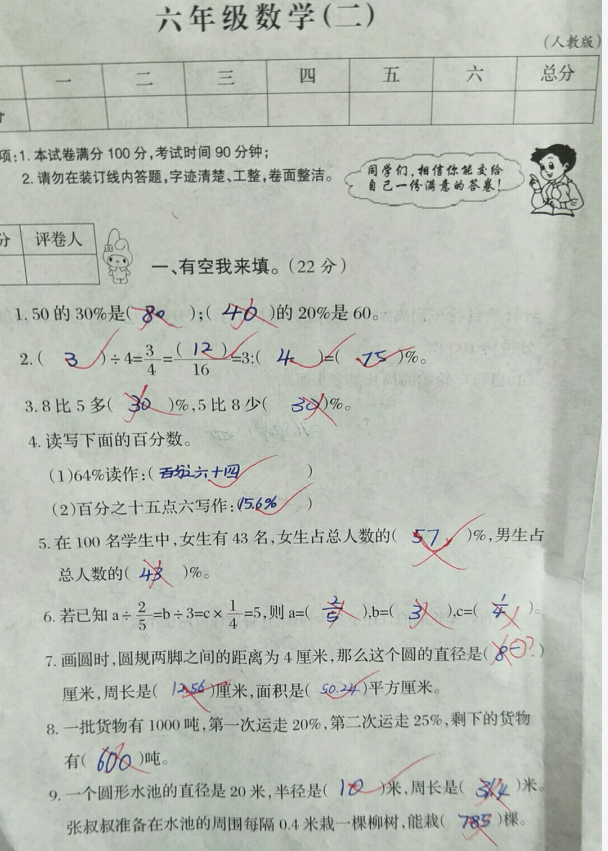 六年级数学(二)
(人教版)
一 二 三 四 五 六 总分
项:1.本试卷满分100分,考试时间90分钟;
2.请勿在装订线内答题,字迹清楚、工整,卷面整洁。
同学们,相信你能交给
自己一份满意的答卷!
分 评卷人
一、有空我来填。(22分)
1.50的30%是( 80 );( 40 )的20%是60。
2.( 3 )÷4=3/4=( 12 )/16=3:( 4 )=( 75 )%。
3.8比5多( 30 )%,5比8少( 30 )%。
4.读写下面的百分数。
(1)64%读作:( 百分之六十四 )
(2)百分之十五点六写作:( 15.6% )
5.在100名学生中,女生有43名,女生占总人数的( 57 )%,男生占
总人数的( 43 )%。
6.若已知a÷2/5=b÷3=c×1/4=5,则a=( 2/5 ),b=( 3 ),c=( 1/4 )。
7.画圆时,圆规两脚之间的距离为4厘米,那么这个圆的直径是( 8 )
厘米,周长是( 12.56 )厘米,面积是( 50.24 )平方厘米。
8.一批货物有1000吨,第一次运走20%,第二次运走25%,剩下的货物
有( 600 )吨。
9.一个圆形水池的直径是20米,半径是( 10 )米,周长是( 31.4 )米。
张叔叔准备在水池的周围每隔0.4米栽一棵柳树,能栽( 785 )棵。